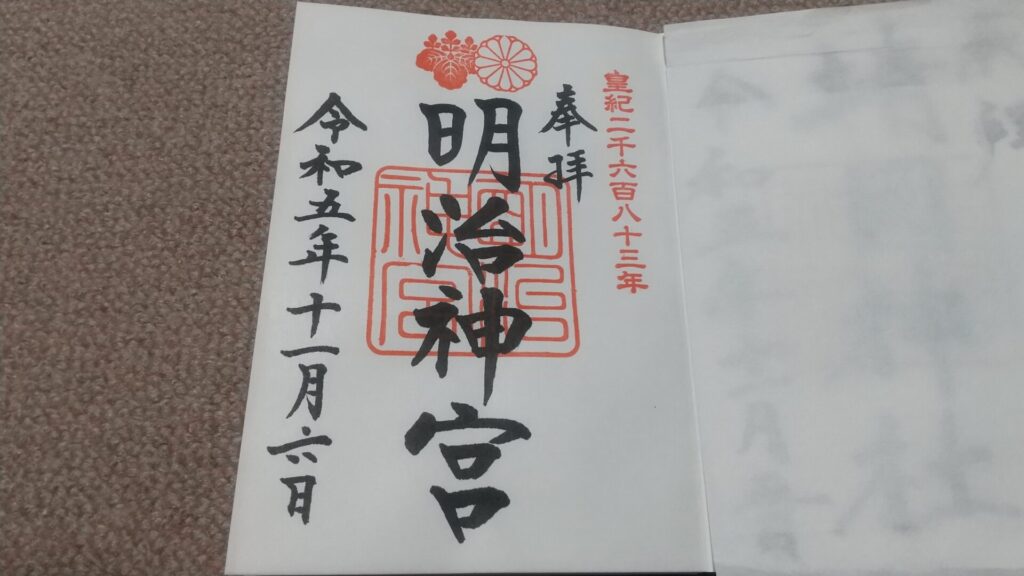 皇紀二千六百八十三年
奉拝
明治神宮
明治神宮
令和五年十一月六日